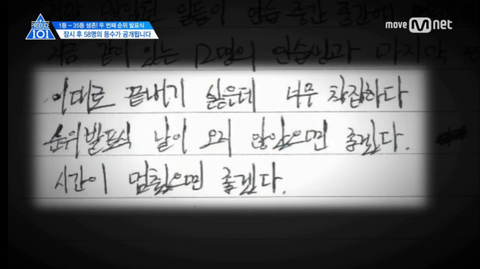 PRODUCE 101
1등 ~ 35등 생존! 두 번째 순위 발표식
잠시 후 58명의 등수가 공개됩니다
M net
지금 같이 있는 12명의 연습생과 마지막
이대로 끝내기 싫은데 너무 착잡하다
순위발표식 날이 오지 않았으면 좋겠다.
시간이 멈췄으면 좋겠다.